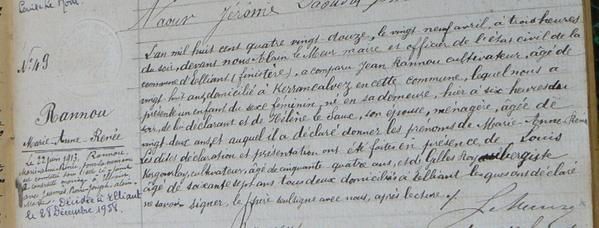 Naour Jérôme
N° 49
Rannou
Marie-Anne-Renée
Le 22 juin 1913, Rannou,
avec Jaouen, René-Joseph,
Décédée à Elliant
le 28 Décembre 1958.
L'an mil huit cent quatre vingt douze, le vingt neuf avril, à trois heures
du soir, devant nous Alain Le Meur maire et officier de l'état civil de la
commune d'Elliant (finistère), a comparu Jean Rannou cultivateur, âgé de
vingt huit ans, domicilié à Kerrancalvez en cette commune, lequel nous a
présenté un enfant du sexe féminin, né en sa demeure, hier à six heures du
soir, de lui déclarant et de Hélène Le Saux, son épouse, ménagère, âgée de
vingt deux ans et auquel il a déclaré donner les prénoms de Marie-Anne-Renée
Les dites déclaration et présentation ont été faites en présence de Louis
cultivateur, âgé de cinquante quatre ans, et de Gilles
âgé de soixante sept ans tous deux domiciliés à Elliant lesquels ont déclaré
ne savoir signer, le père soussigné avec nous, après lecture
Le Meur